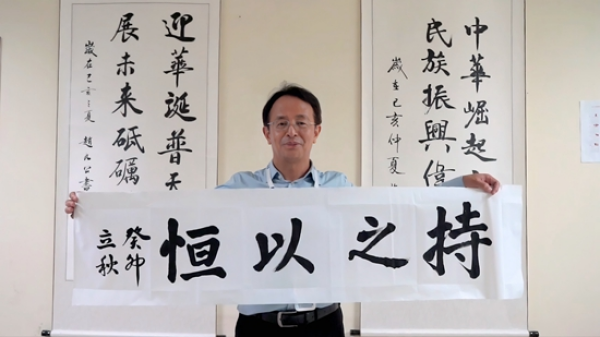 中華崛起
民族振興偉
歲在己亥仲夏
迎華誕普天
展未来砥礪
歲在己亥之夏
持之以恒
癸卯
立秋